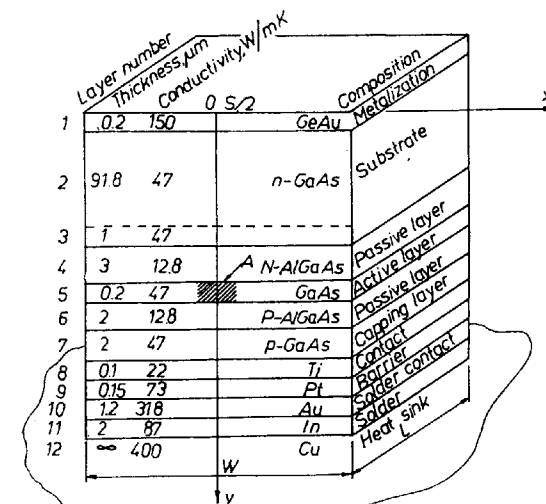 Layer number
Thickness, μm
Conductivity, W/mK
0 S/2
Composition
x
1 0.2 150 GeAu Metalization
2 91.8 47 n-GaAs Substrate
3 1 47
4 3 12.8 A N-AlGaAs Passive layer
5 0.2 47 GaAs Active layer
6 2 12.8 P-AlGaAs Passive layer
7 2 47 p-GaAs Capping layer
8 0.1 22 Ti Contact
9 0.15 73 Pt Barrier
10 1.2 318 Au Solder contact
11 2 87 In Solder
12 ∞ 400 Cu Heat sink
L
W
y